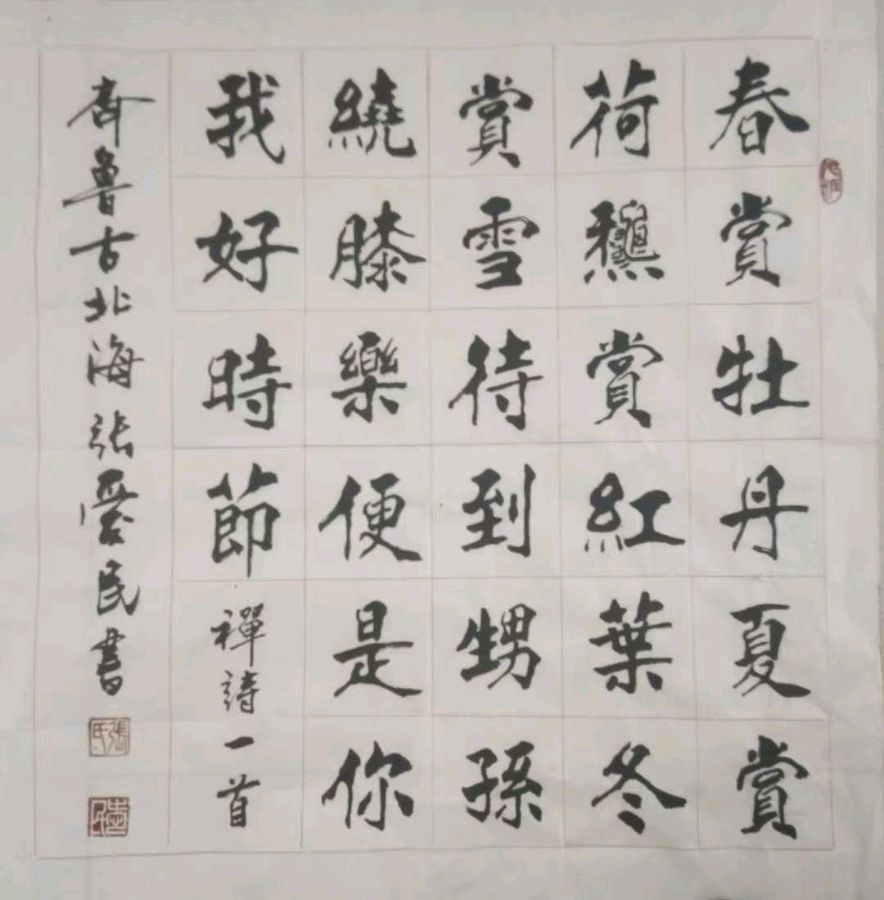 春賞牡丹夏賞
荷龝賞紅葉冬
賞雪待到甥孫
繞膝樂便是你
我好時節禪詩一首
齊魯古北海張民書